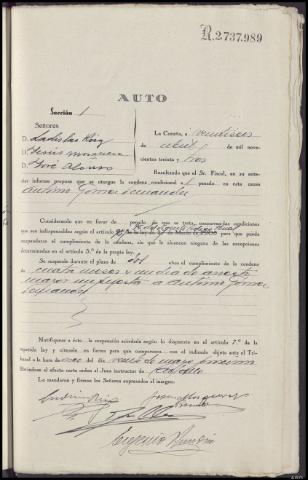 R.2.737.989
AUTO
Sección 1
Señores
D. Ladislao Roig
D. Jesús
D. José Alonso
La Coruña, a veintiseis
de abril de mil nove-
cientos treinta y tres
Resultando que el Sr. Fiscal, en su ante-
rior informe propone que se otorgue la condena condicional al penado en esta causa
Antonio Gómez
Considerando que en favor de penado de que se trata, concurren las condiciones
que son indispensables según el artículo de la ley de 17 de Marzo de 1908 para que pueda
suspenderse el cumplimiento de la condena, sin que le alcancen ninguna de las excepciones
determinadas en el artículo 3.º de la propia ley.
Se suspende durante el plazo de dos años el cumplimiento de la condena
de cuatro meses y un día de arresto
mayor impuesta a Antonio Gómez
Notifíquese a éste la suspensión acordada según lo dispuesto en el artículo 7.º de la
repetida ley y cítesele en forma para que comparezca con el indicado objeto ante el Tri-
bunal a la hora de once del día de mayo próximo
librándose al efecto carta orden al Juez instructor de
Lo mandaron y firman los Señores expresados al margen:
Eugenio